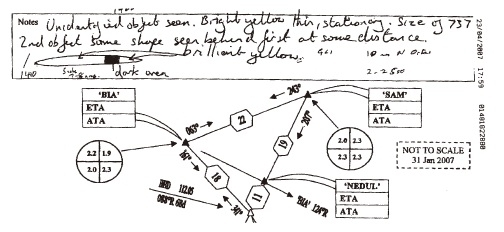 Notes Unidentified object seen. Bright yellow thin, stationary. Size of 737
2nd object same shape seen behind first at same distance.
brilliant yellow.
dark area
23/04/2007 17:59
01481822080
'BIA'
ETA
ATA
'SAM'
ETA
ATA
'NEDUL'
ETA
ATA
2.2 1.9
2.0 2.3
2.0 2.3
2.3 2.3
NOT TO SCALE
31 Jan 2007
063°
22
243°
207°
19
18
11
'BIA' 124°R
112.05